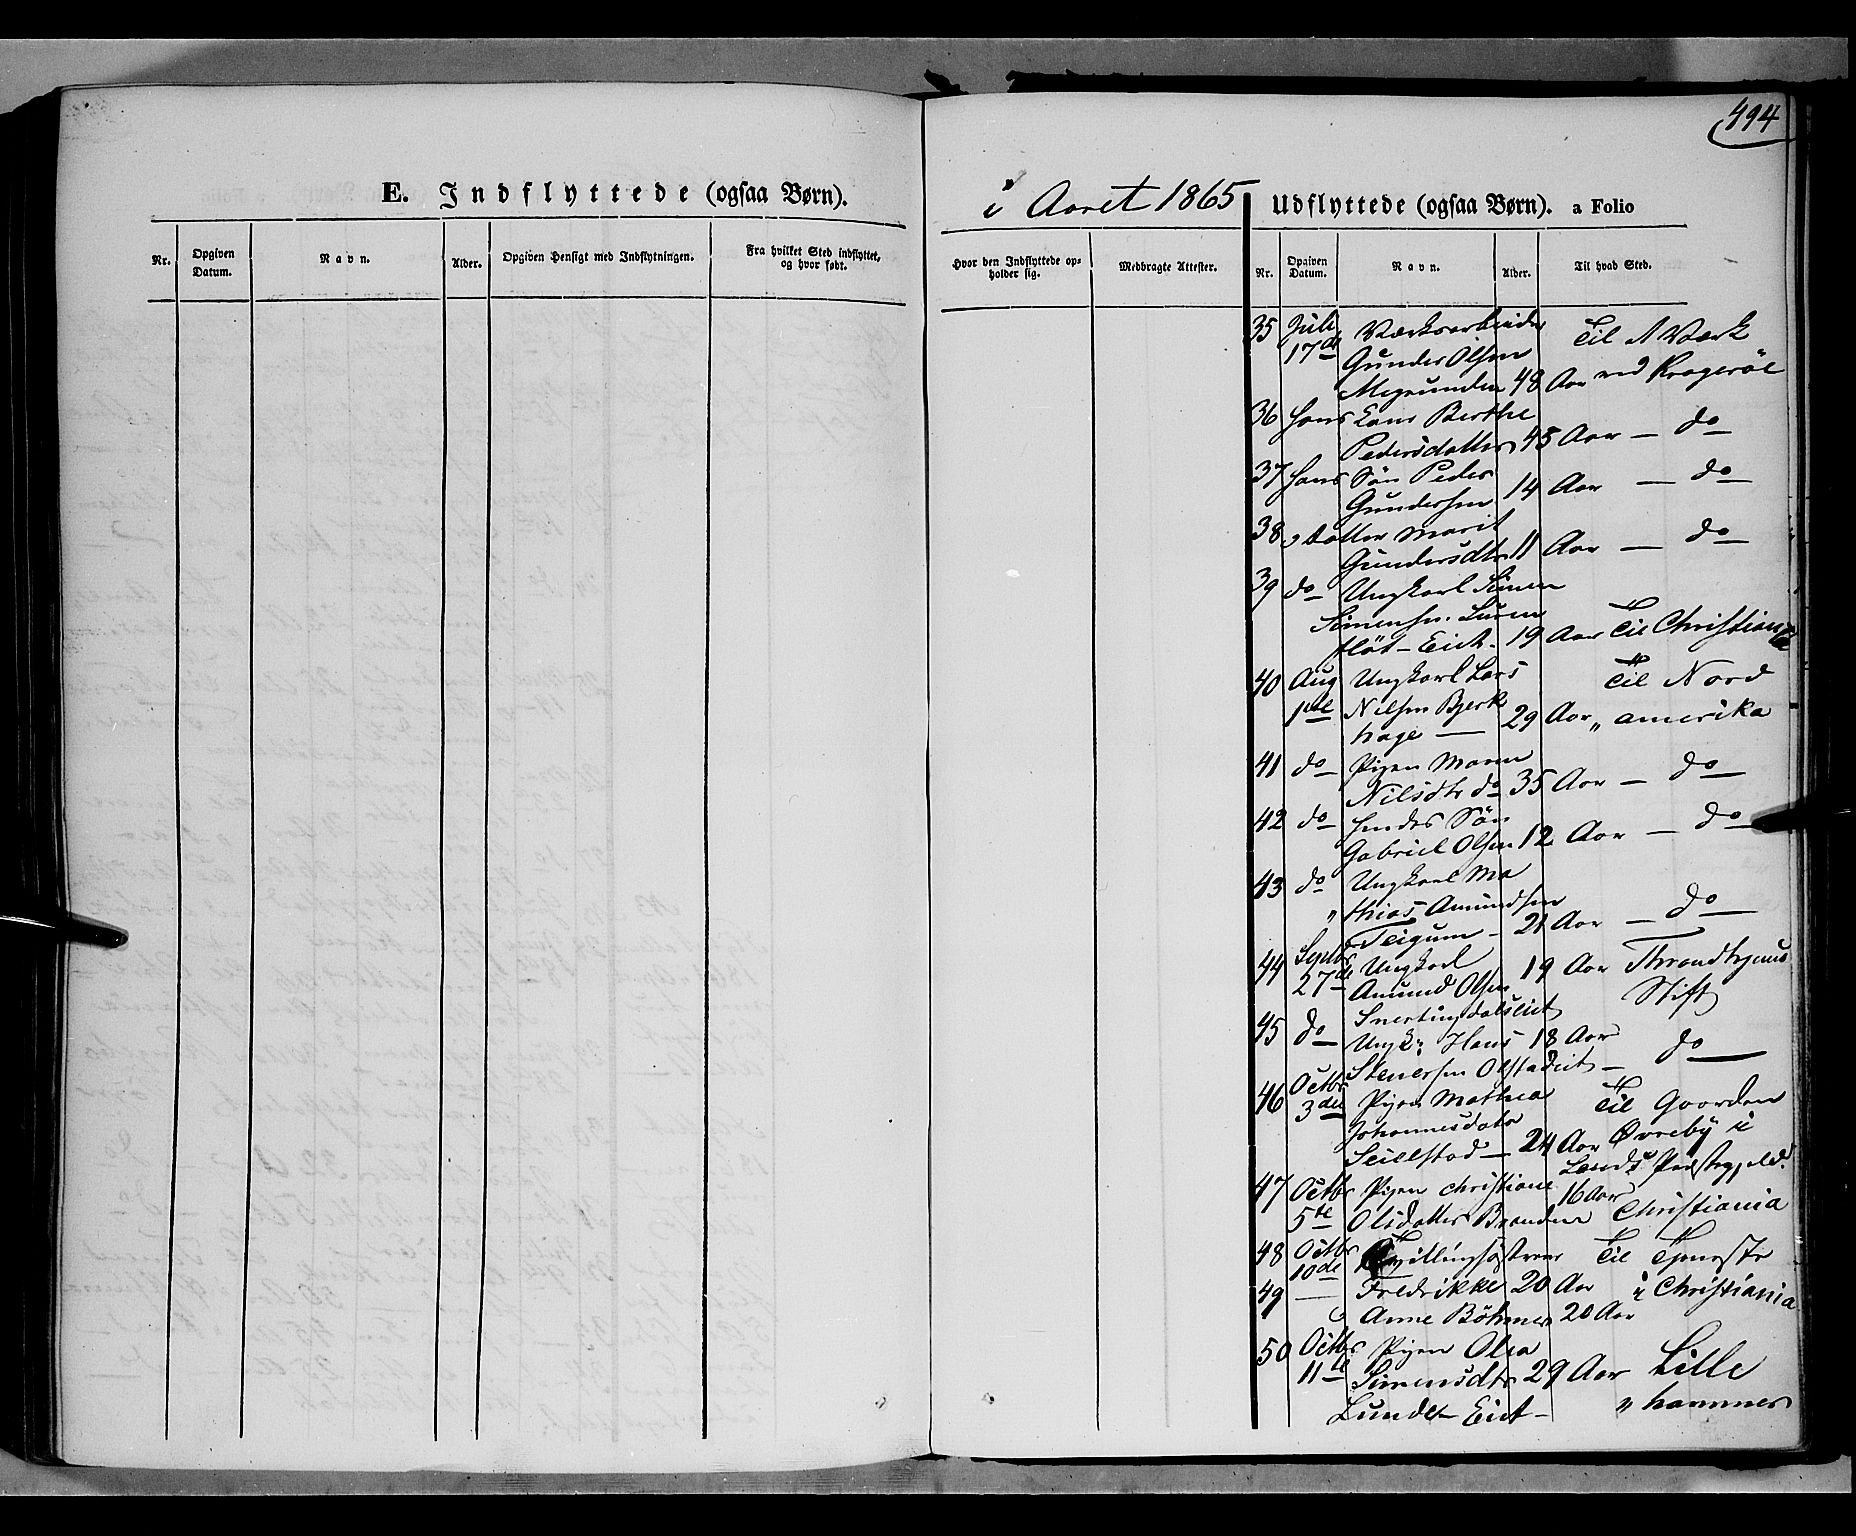 494
E. Indflyttede (ogsaa Børn).
i Aaret 1865
Udflyttede (ogsaa Børn). a Folio
Nr.
Opgiven Datum.
Navn.
Alder.
Opgiven Hensigt med Indflytningen.
Fra hvilket Sted indflyttet, og hvor født.
Hvor den Indflyttede opholder sig.
Medbragte Attester.
Nr.
Opgiven Datum.
Navn.
Alder.
Til hvad Sted.
35 Juli Værksarbeider Til Værk
17de Gunder Olsen
48 Aar ved Kragerøe
36 Hans Kone Berthe
Pedersdatter 45 Aar — do
37 Hans Søn Peder
Gundersen 14 Aar — do
38 Datter Marit
Gundersdtr 11 Aar — do
39 do Ungkarl Simen
Simensen
Eiet. 19 Aar Til Christiania
40 Aug Ungkarl Lars Til Nord
1ste Nilsen Bjerk
hage — 29 Aar „ amerika
41 do Pigen Maren
Nilsdtr do 35 Aar — do
42 do Hendes Søn
Gabriel Olsen 12 Aar — do
43 do Ungkarl Ma
„ thias Amundsen
Teigum — 21 Aar — do
44 Septbr Ungkarl 19 Aar Throndhjems
27de Amund Olsen Stift
Snertingdalseiet
45 do Ungk: Hans 18 Aar
Stenersen Olstadeiet — do
46 Octbr Pigen Mathea Til Gaarden
3die Johannesdatr
Seielstad — 24 Aar Øvreby i
Lands Præstegjeld.
47 Octbr Pigen Christiane 16 Aar
5te Olsdatter Branden Christiania
48 Octbr Tvillingsøstrene Til Tjeneste
10de
49 — Fredrikke 20 Aar i Christiania
Anne Böhmer 20 Aar
50 Octbr Pigen Olea
11te Simensdtr 29 Aar Lille
Lunde Eiet — „ hammer